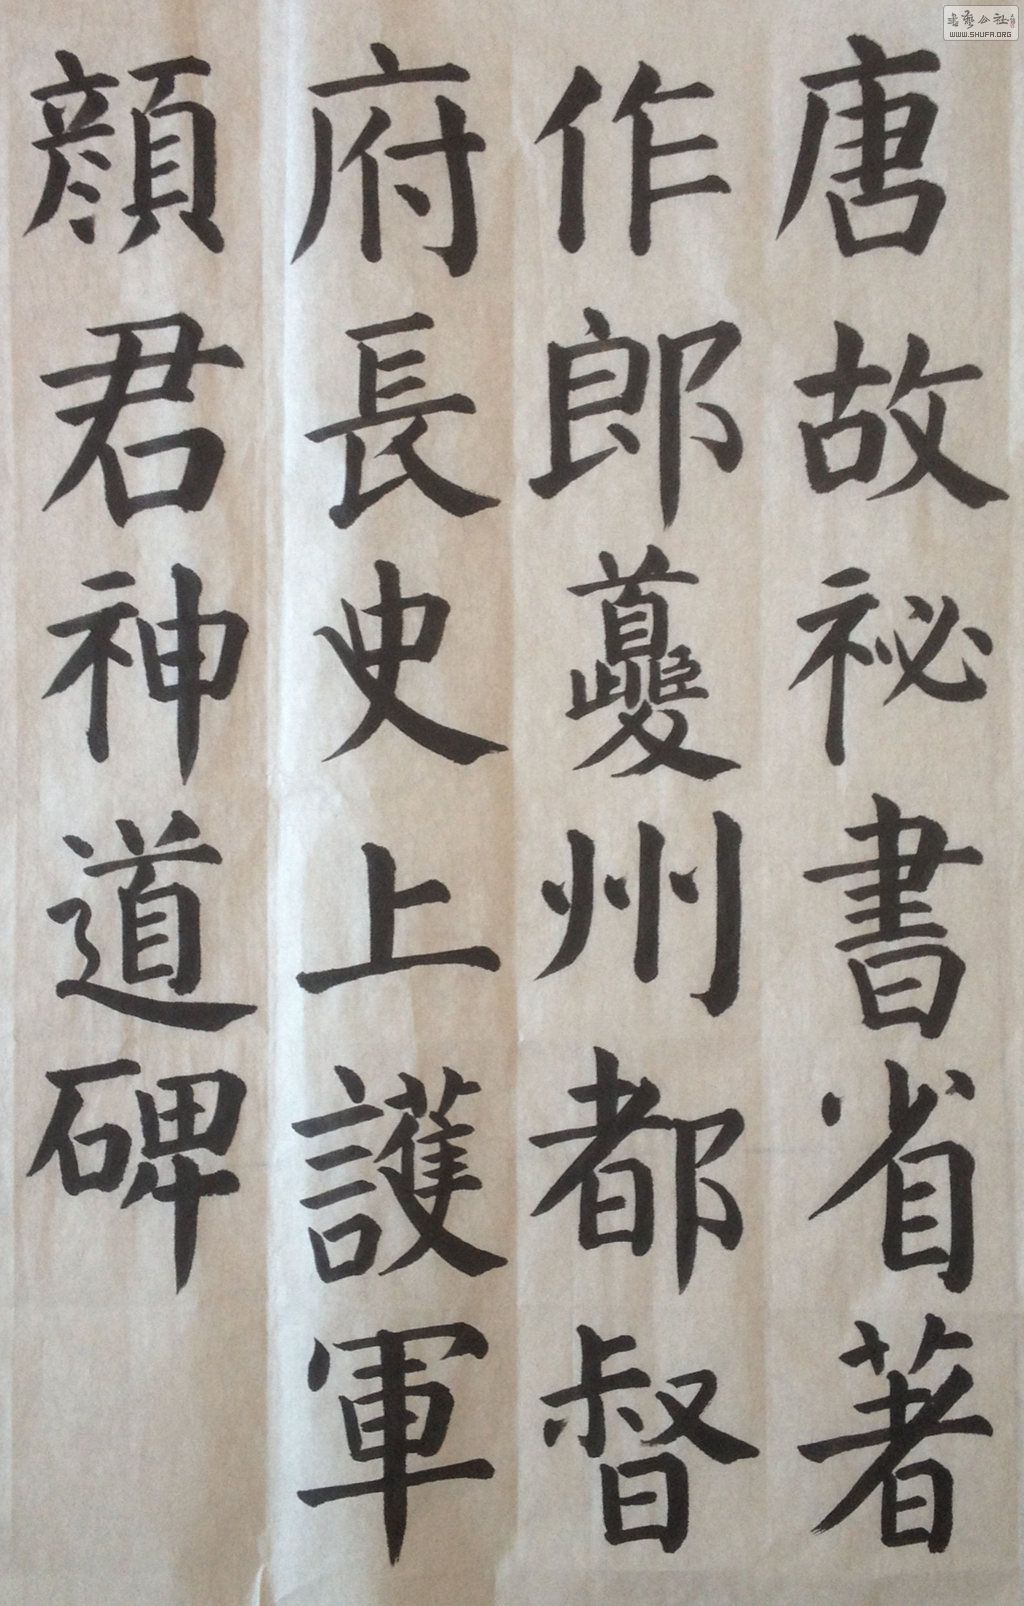 唐故祕書省著
作郎夔州都督
府長史上護軍
顏君神道碑
書藝公社
WWW.SHUFA.ORG